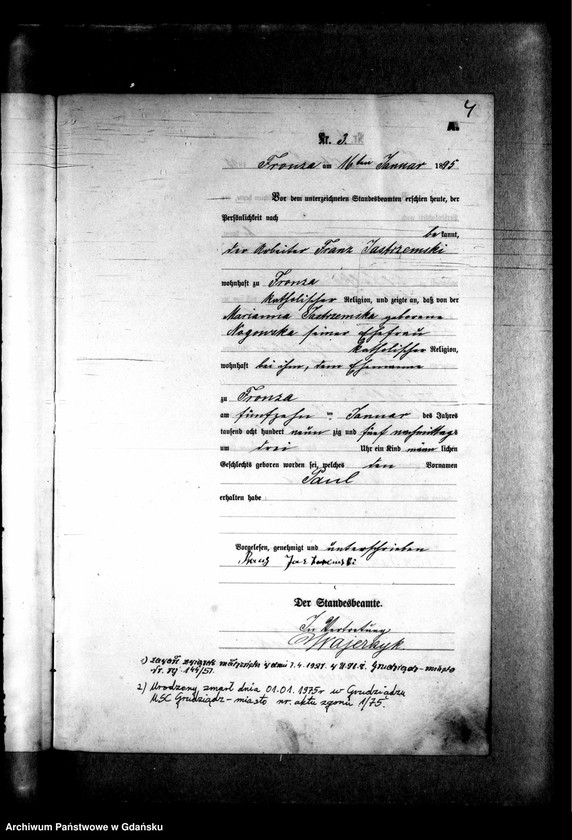 4
A.
Nr. 3.
Fronza am 16ten Januar 1895
Vor dem unterzeichneten Standesbeamten erschien heute, der
Persönlichkeit nach
be kannt,
der Arbeiter Franz Jastrzemski
wohnhaft zu Fronza
katholischer Religion, und zeigte an, daß von der
Marianna Jastrzemska geborene
Nagowska seiner Ehefrau
katholischer Religion,
wohnhaft bei ihm, dem Ehemanne
zu Fronza
am fünfzehn ten Januar des Jahres
tausend acht hundert neun zig und fünf nachmittags
um drei Uhr ein Kind männ lichen
Geschlechts geboren worden sei, welches den Vornamen
Paul
erhalten habe
Vorgelesen, genehmigt und unterschrieben
Franz
Der Standesbeamte.
In Vertretung
1) zawarł związek małżeński dnia 7.4.1951 Grudziądz-miasto
Nr. 144/51.
2) Urodzony zmarł dnia 01.01.1975r w Grudziądzu
USC Grudziądz-miasto nr. aktu zgonu 1/75.
Archiwum Państwowe w Gdańsku